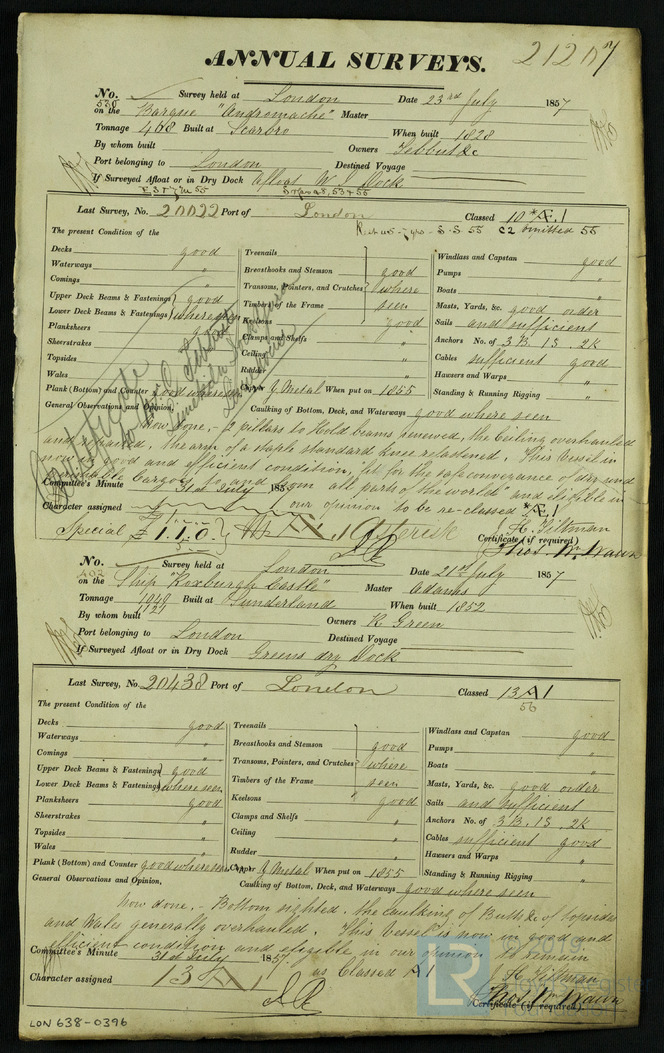 ANNUAL SURVEYS.
21207
No. 530 Survey held at London Date 23rd July 1857
on the Barque "Andromache" Master
Tonnage 468 Built at Scarbro When built 1828
By whom built Owners Tebbut &c
Port belonging to London Destined Voyage
If Surveyed Afloat or in Dry Dock Afloat W. I. Dock
Last Survey, No. 20022 Port of London Classed 10 *A.1
The present Condition of the
C2 omitted 55
Decks good
Waterways "
Comings "
Upper Deck Beams & Fastenings good
Lower Deck Beams & Fastenings where seen
Planksheers
Sheerstrakes
Topsides
Wales
Plank (Bottom) and Counter good where seen
General Observations and Opinion,
Treenails
Breasthooks and Stemson good
Transoms, Pointers, and Crutches where
Timbers of the Frame seen
Keelsons good
Clamps and Shelfs "
Ceiling "
Rudder "
Copper Y Metal When put on 1855
Caulking of Bottom, Deck, and Waterways good where seen
Windlass and Capstan good
Pumps "
Boats "
Masts, Yards, &c. good order
Sails and sufficient
Anchors No. of 3B. 1S. 2K
Cables sufficient good
Hawsers and Warps "
Standing & Running Rigging "
Now done, - 2 pillars to Hold beams renewed, the Ceiling overhauled
and repaired, the arm of a staple standard knee refastened. This Vessel is
now in good and efficient condition, fit for the safe conveyance of dry and
perishable Cargoes to and from all parts of the world and eligible in
Committee's Minute 31st July 185
our opinion to be re-classed *Æ1
Character assigned
J. H. Tiltman
Special £1.1.0. Asterisk
Certificate (if required)
Thos. Wm. Wawn
No. 402 Survey held at London Date 21st July 1857
on the Ship "Roxburgh Castle" Master Adams
Tonnage 1049 1121 Built at Sunderland When built 1852
By whom built Owners R Green
Port belonging to London Destined Voyage
If Surveyed Afloat or in Dry Dock Greens dry Dock
Last Survey, No. 20438 Port of London Classed 13 A1
56
The present Condition of the
Decks good
Waterways "
Comings "
Upper Deck Beams & Fastenings good
Lower Deck Beams & Fastenings where seen
Planksheers good
Sheerstrakes "
Topsides "
Wales "
Plank (Bottom) and Counter good where seen
General Observations and Opinion,
Treenails
Breasthooks and Stemson good
Transoms, Pointers, and Crutches where
Timbers of the Frame seen
Keelsons good
Clamps and Shelfs "
Ceiling "
Rudder "
Copper Y Metal When put on 1855
Caulking of Bottom, Deck, and Waterways good where seen
Windlass and Capstan good
Pumps "
Boats "
Masts, Yards, &c. good order
Sails and sufficient
Anchors No. of 3B. 1S. 2K
Cables sufficient good
Hawsers and Warps "
Standing & Running Rigging "
Now done, - Bottom sighted, the caulking of Butts &c of topsides
and Wales generally overhauled. This Vessel is now in good and
efficient condition and eligible in our opinion to remain
Committee's Minute 31st July 1857
as Classed A1
Character assigned 13 A1
J. H. Tiltman
Thos. Wm. Wawn
Certificate (if required)
LON 638-0396
LR